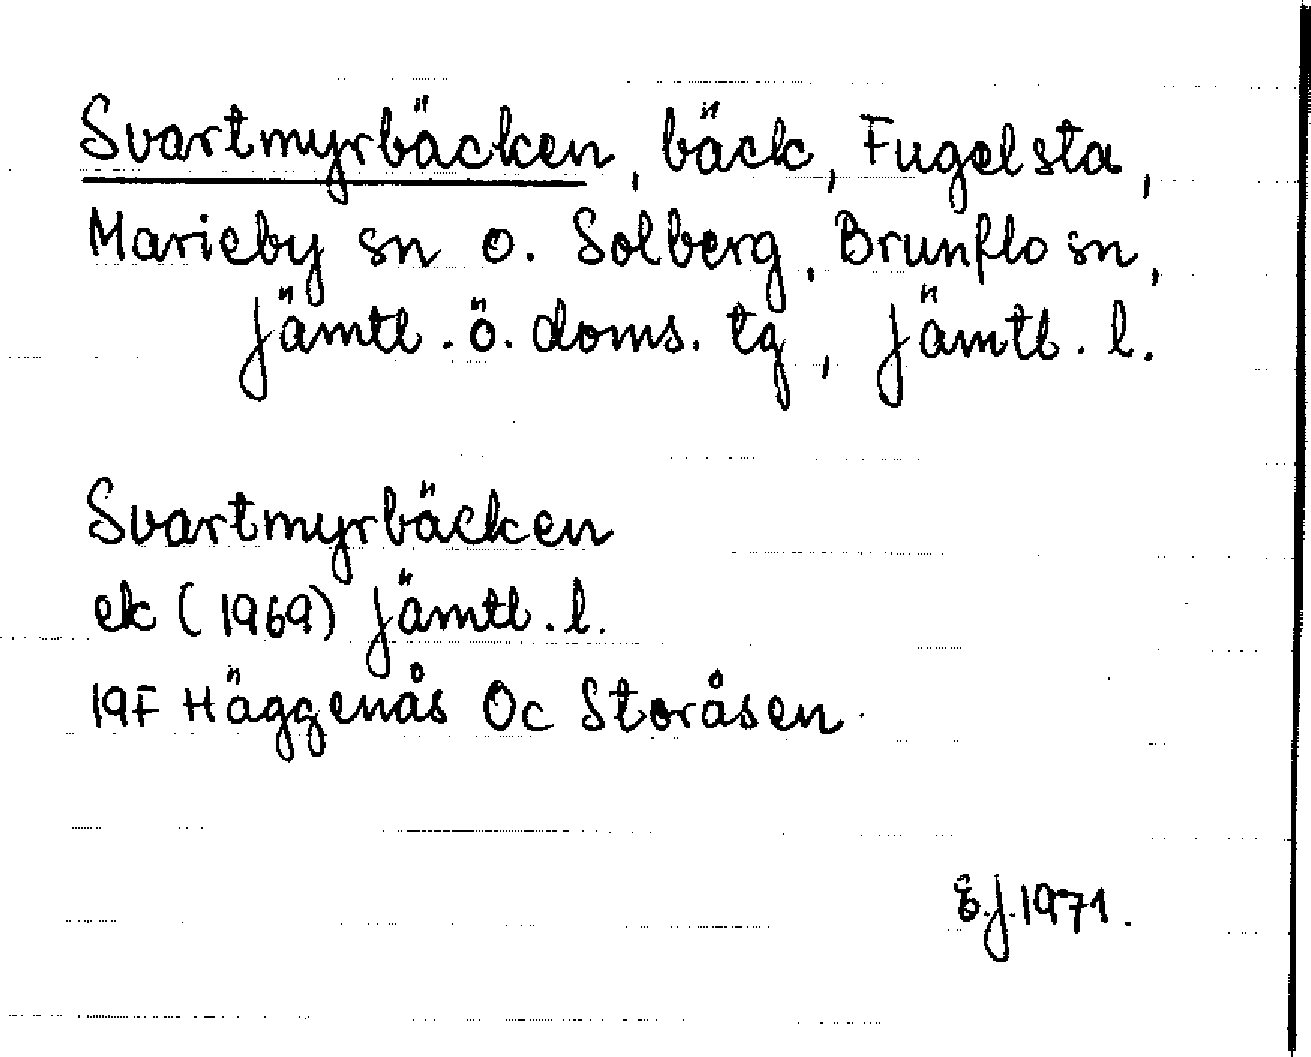 Svartmyrbäcken, bäck, Fugelsta,
Marieby sn o. Solberg, Brunflo sn,
Jämtl. ö. doms. tg, Jämtl. l.
Svartmyrbäcken
ek (1969) Jämtl. l.
19F Häggenås Oc Storåsen
E.J. 1971.